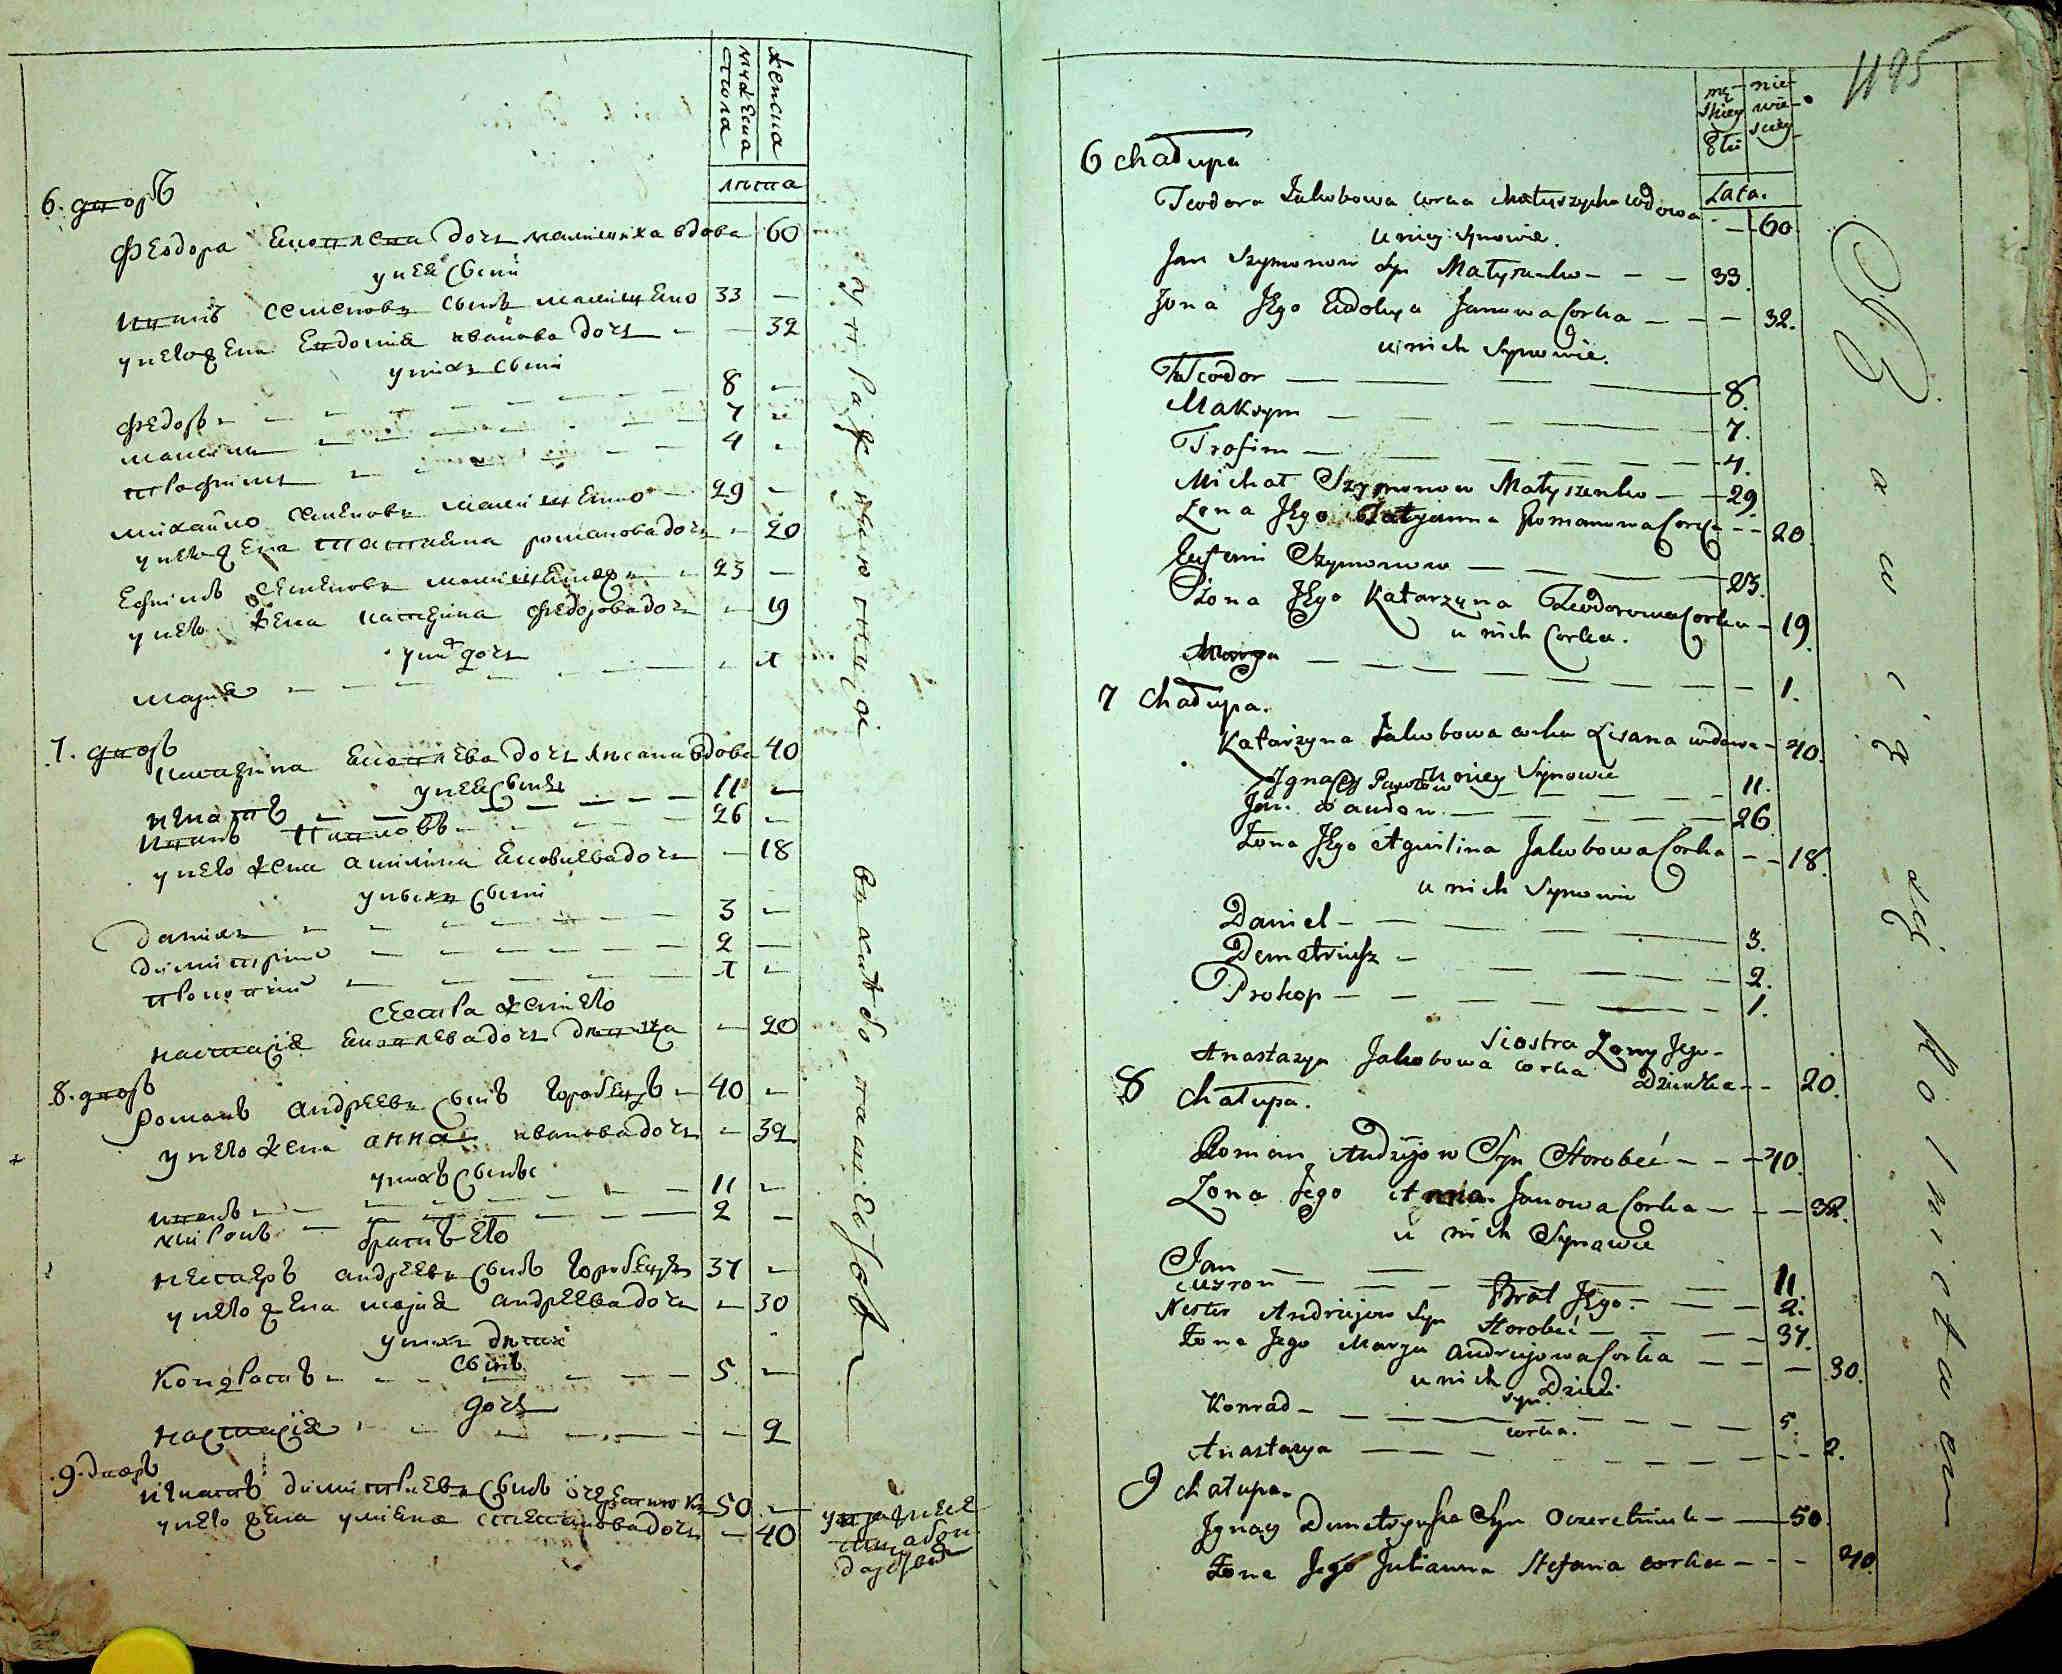 мужеска
пола
женска
лѣта
6. дворъ
Феодора Яковлева дочь матишиха вдова 60
у нея сыны
Иванъ Семеновъ сынъ матишенко 33 —
у него жена Евдокия иванова дочь — 32
у нихъ сыны
Федоръ 8 —
Максимъ 7 —
трофимъ 4 —
михайло семеновъ матишенко 29 —
у него жена татияна романова дочь — 20
Ефимъ семеновъ матишенко 23 —
у него жена катерина федорова дочь — 19
у них дочь
мария — 1
7. дворъ
катерина Яковлева дочь лисана вдова 40
у нея сынъ
игнатъ 11 —
Иванъ Павловъ 26 —
у него жена акилина Яковлева дочь — 18
у нихъ сыны
данило 3 —
димитрий 2 —
прокопий 1 —
сестра жены его
настасия Яковлева дочь девка — 20
8. дворъ
романъ андреевъ сынъ горобецъ 40 —
у него жена анна иванова дочь — 32
у нихъ сынове
иванъ 11 —
миронъ 2 —
братъ его
нестеръ андреевъ сынъ горобецъ 37 —
у него жена мария андреева дочь — 30
у нихъ дети
сынъ
Кондратъ 5 —
дочь
настасия — 2
9. дворъ
игнатъ димитриевъ сынъ 50 —
у него жена улиана степанова дочь — 40
1195
mę-
skiey
Płci
nie-
wie-
sciey
Lata.
6 chałupa
Teodora Jakobowa corka Matyszycha wdowa — 60
u niey Synowie.
Jan Szymonow Syn Matyszenko — — 33.
Zona Jego Eudokya Janowa Corka — — 32.
u nich Synowie.
Teodor — 8.
Maksym — 7.
Trofim — 4.
Michał Szymonow Matyszenko — 29
Zona Jego Tatyanna Romanowa Corka — 20.
Eufemi Szymonow — 23.
Zona Jego Katarzyna Teodorowa Corka — 19.
u nich Corka.
Marya — 1.
7 Chałupa.
Katarzyna Jakobowa corka Lisana wdowa — 40.
u oney Synowie
Ignacy Pawłow — 11.
Jan — 26
Zona Jego Aquilina Jakobowa Corka — 18.
u nich Synowie
Daniel — 3.
Demetriusz — 2.
Prokop — 1.
Siostra Zony Jego
Anastazya Jakobowa corka Dziewka — 20.
8 Chałupa.
Roman Andrzejow Syn Horobeć — 40.
Zona Jego Anna Janowa Corka — 32.
u nich Synowie
Jan — 11
Myron — 2.
Brat Jego.
Nester Andrzejow Syn Horobeć — 37.
Zona Jego Marya Andrzejowa Corka — 30.
u nich Dzieci
Syn.
Konrad — 5.
corka.
Anastazya — 2.
9 chałupa.
Ignacy Dimetryusza Syn Oczeretnik — 50.
Zona Jego Julianna Stefana corka — 40.